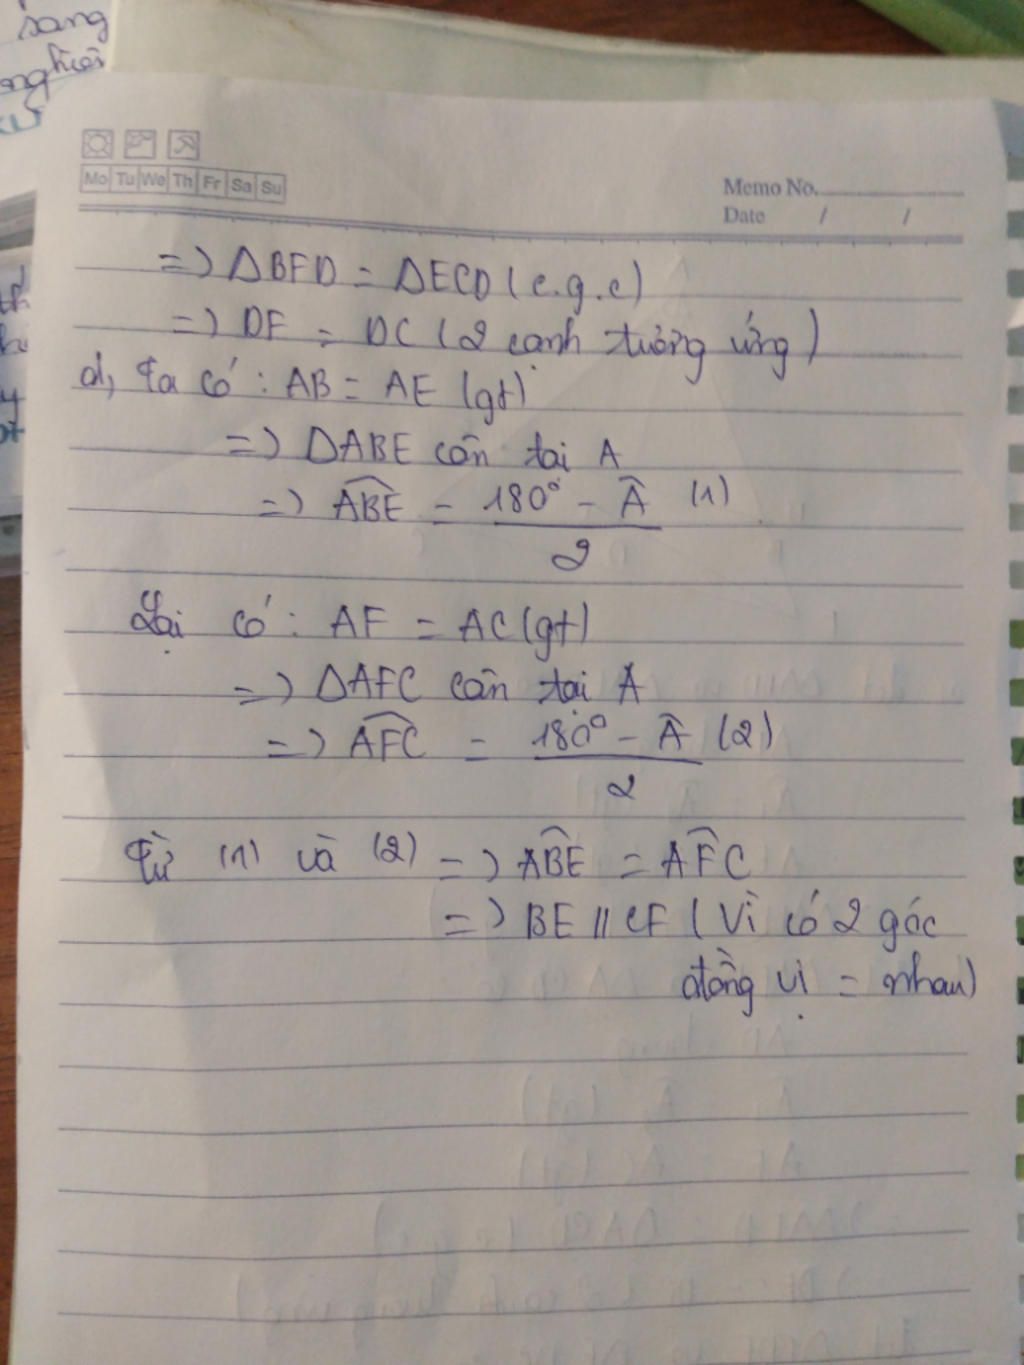 sang
Mo Tu We Th Fr Sa Su
Memo No.
Date / /
=> ΔBFD = ΔECD (c.g.c)
=> DF = DC (2 cạnh tương ứng)
d, Ta có: AB = AE (gt)
=> ΔABE cân tại A
=> \widehat{ABE} = \frac{180° - \widehat{A}}{2} (1)
Lại có: AF = AC (gt)
=> ΔAFC cân tại A
=> \widehat{AFC} = \frac{180° - \widehat{A}}{2} (2)
Từ (1) và (2) => \widehat{ABE} = \widehat{AFC}
=> BE // CF (Vì có 2 góc
đồng vị = nhau)